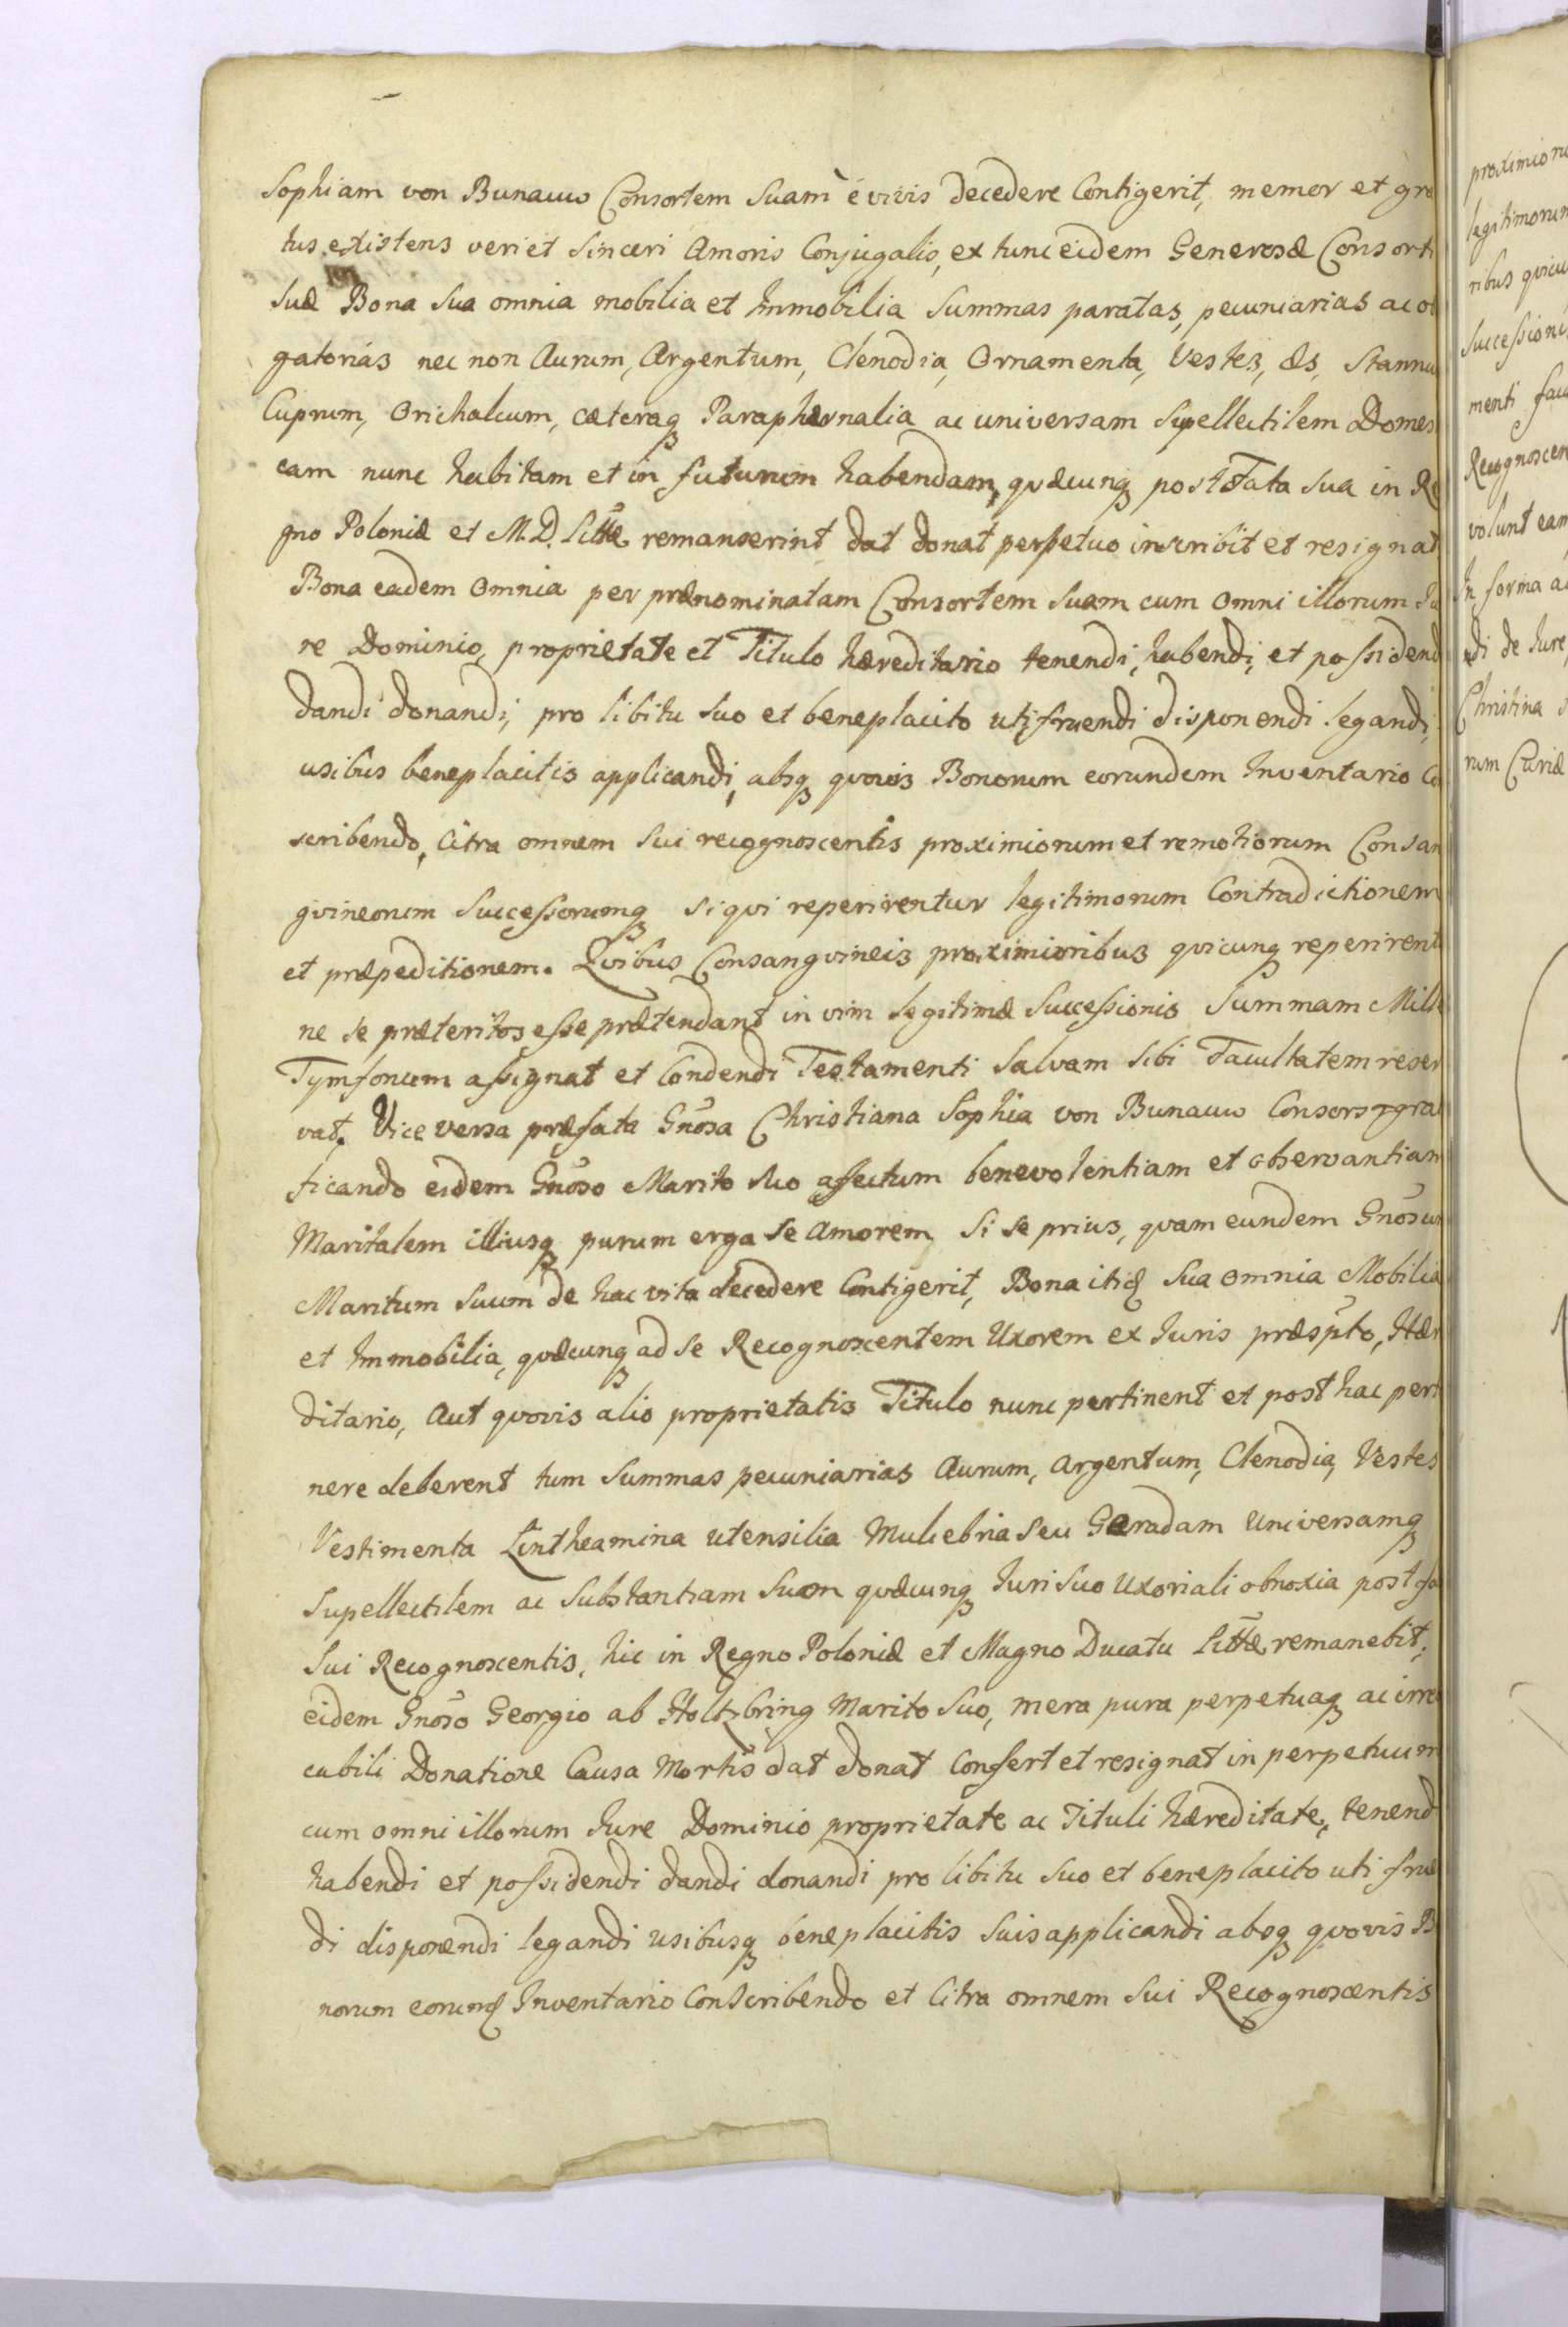 Sophiam von Bunauw Consortem Suam è vivis decedere Contigerit, memor et gra
tus existens veri et Sinceri Amoris Conjugalis, ex tunc eidem Generosæ Consorti
Suæ Bona Sua omnia mobilia et Immobilia Summas paratas, pecuniarias ac o
gatorias nec non Aurum, Argentum, Clenodia, Ornamenta, Vestes, Æs, Stannu
Cuprum, Orichalcum, cæteraq Paraphernalia ac universam Supellectilem Domes
cam nunc habitam et in futurum habendam, qvæcunq post Fata Sua in Re
gno Poloniæ et M. D. Littæ remanserint dat donat perpetuo inscribit et resignat
Bona eadem Omnia per prænominatam Consortem Suam cum Omni illorum Ju
re Dominio, proprietate et Titulo hæreditario tenendi, habendi, et possidend
dandi donandi, pro libitu Suo et beneplacito uti fruendi disponendi legandi,
usibus beneplacitis applicandi, absq qvovis Bonorum eorundem Inventario Co
scribendo, Citra omnem Sui recognoscentis proximiorum et remotiorum Consan
gvineorum Successorumq si qvi reperirentur legitimorum Contradictionem
et præpeditionem. Qvibus Consangvineis proximioribus qvicunq reperirent
ne se præteritos esse prætendant in vim legitimæ Successionis Summam Mille
Tymfonum assignat et Condendi Testamenti Salvam Sibi Facultatem reser
vat. Vice versa præfata Gnosa Christiana Sophia von Bunauw Consors gra
ficando eidem Gnoso Marito Suo affectum benevolentiam et observantiam
Maritalem illiusq purum erga Se Amorem, Si Se prius, qvam eundem Gnosum
Maritum Suum de hac vita decedere Contigerit, Bona itid Sua Omnia Mobilia
et Immobilia, qvæcunq ad Se Recognoscentem Uxorem ex Juris præspto, Hær
ditario, Aut qvovis alio proprietatis Titulo nunc pertinent et post hac perti
nere deberent tum Summas pecuniarias Aurum, Argentum, Clenodia, Vestes
Vestimenta Lintheamina utensilia Muliebria Seu Geradam Universamq
Supellectilem ac Substantiam Suam qvæcunq Juri Suo Uxoriali obnoxia post fa
Sui Recognoscentis, hic in Regno Poloniæ et Magno Ducatu Littæ remanebit,
eidem Gnoso Georgio ab Holtzbring Marito Suo, mera pura perpetuaq ac irre
cabili Donatione Causa Mortis dat donat Confert et resignat in perpetuum
cum omni illorum Jure Dominio proprietate ac Tituli hæreditate, tenend
habendi et possidendi dandi donandi pro libitu Suo et beneplacito uti frue
di disponendi legandi usibusq beneplacitis Suis applicandi absq qvovis B
norum eorund Inventario Conscribendo et Citra omnem Sui Recognoscentis
proximioru
legitimorum
ribus qvicu
Successioni
menti facu
Recognoscen
volunt eam
In forma a
di de Jure
Christina
rum Curiæ